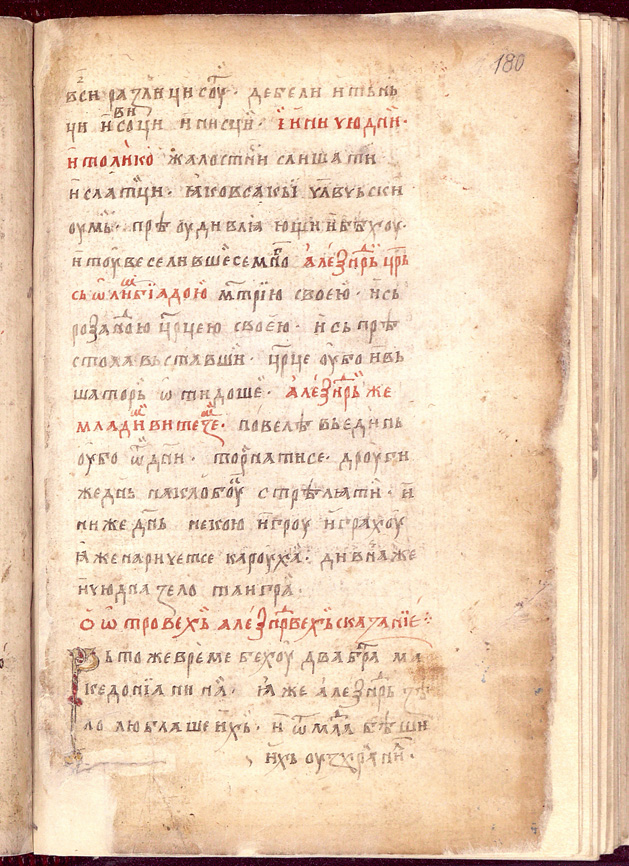 180
вси различи соуⷮ · дебели и тьнь
ци и сови и писци · ꙇ ини чюдни ·
и толико жалостни слишати
и слатци · ꙗко всакы чл҃вчьски
оумь · прѣоудивлꙗющи и бѣхоу ·
и тоу веселивше се много алеѯаⷩ҇дрь цр҃ь
сь ѡлимьбїадою мт҃рїю своею · и сь
розаⷩ҇дою цр҃цею своею · и сь прѣ
стола вьставши · цр҃це оубо и вь
шаторь ѿидоше · алеѯаⷩ҇дрь же
млади витезе · повелѣ вь единь
оубо дн҃ь · тѡрнати се · дроуги
же дн҃ь на клобоукь стрѣлꙗти · и
ини же дн҃ь некою игроу играхоу
ꙗже наричет се кароуха · дивна же
чюдна ѕело та игра
ѡ ѿровехь алеѯаⷩ҇дровехь сказанїе ⁘
Вь то же време бехоу два брата ма
кедонїанина · ꙗже алеѯаⷩ҇дрь ѕѣ
ло люблаше ихь · и ѿ млада бѣше
ихь оусхранил ·